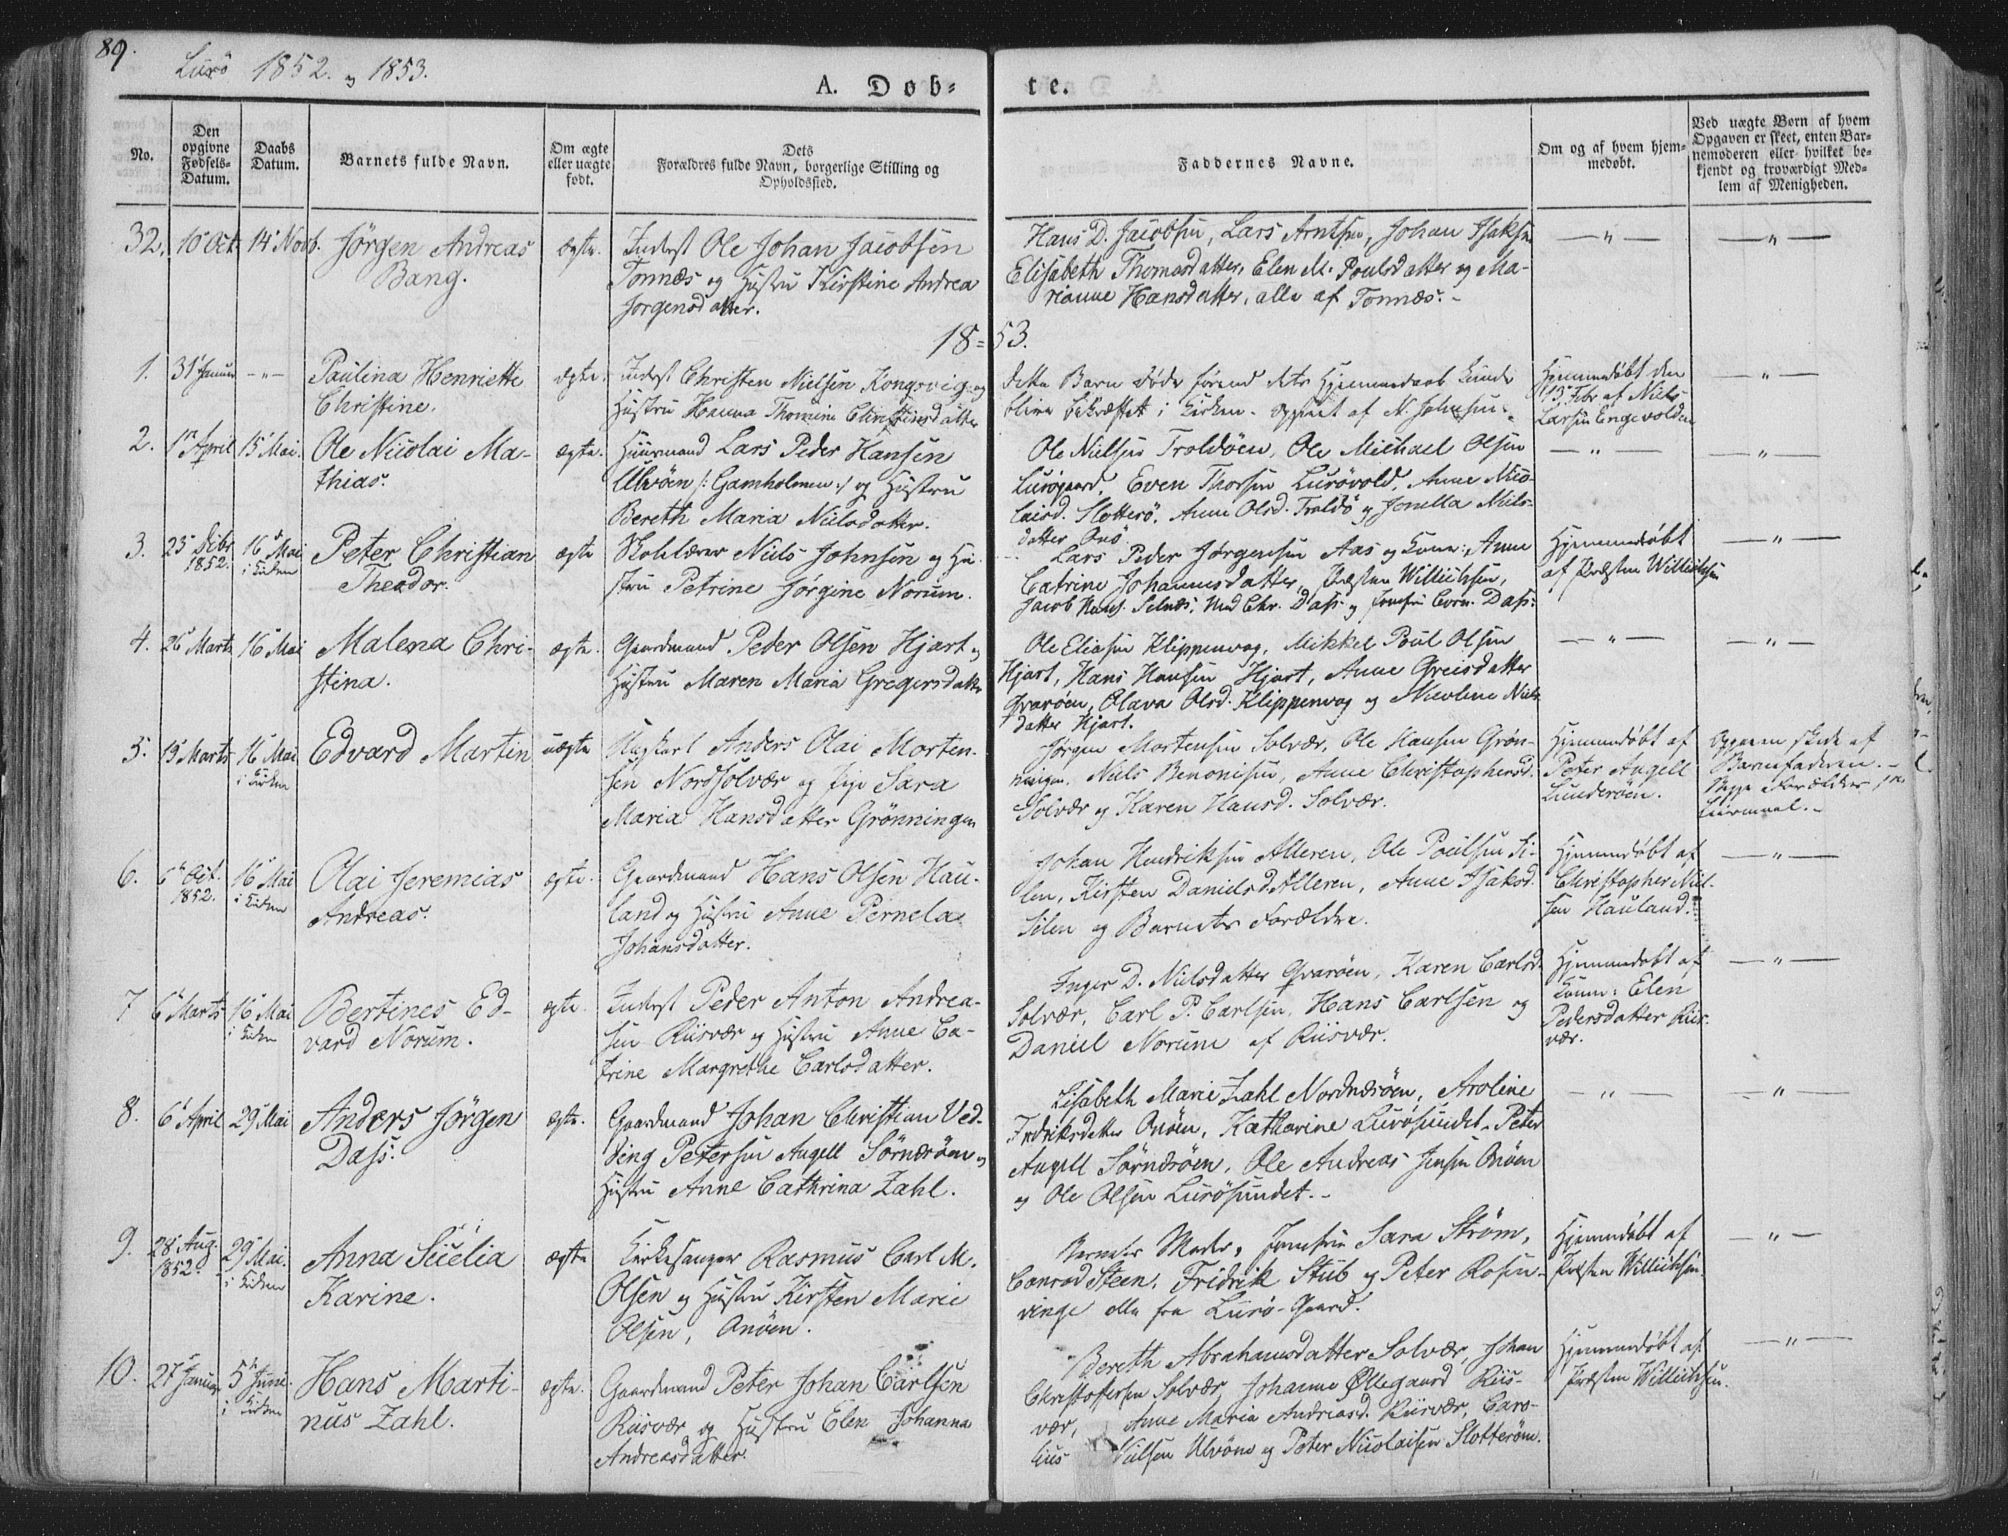 89.
Lurö 1852. og 1853.
A. Døb-
te.
No.
Den
opgivne
Fødsels-
Datum.
Daabs
Datum.
Barnets fulde Navn.
Om ægte
eller uægte
født.
Dets
Forældres fulde Navn, borgerlige Stilling og
Opholdssted.
Faddernes Navne.
Om og af hvem hjem-
medøbt.
Ved uægte Børn af hvem
Opgaven er skeet, enten Bar-
nemoderen eller hvilket be-
kjendt og troværdigt Med-
lem af Menigheden.
32. 10 Oct. 14 Novb. Jörgen Andreas
Bang.
ægte.
Inderst Ole Johan Jacobsen
Tonnæs og Hustru Kirstine Andrea
Jorgensdatter.
Hans D. Jacobsen, Lars Arntsen, Johan Isaksen
Elisabeth Thomasdatter, Elen M. Poulsdatter og Ma-
rianne Hansdatter, alle af Tonnæs. -
— " —
— " —
18 = 53.
1. 31 Januar — " — Paulina Henriette
Christine.
ægte.
Inderst Christen Nielsen Kongsvig og
Hustru Hanna Thomine Christinsdatter
dette Barn døde førend dets Hjemmedaab kunde
blive bekræftet i Kirken. Opgivet af N. Johnsen.
Hjemmedøbt den
13 Febr af Niels
Larsen Engevolden
— " —
2. 1 April 15 Mai. Ole Nicolai Ma-
thias.
ægte.
Huusmand Lars Peder Hansen
Ulvöen /: Gamholmen :/ og Hustru
Bereth Maria Nielsdatter.
Ole Nielsen Troldöen, Ole Michael Olsen
Lurögaard, Even Thorsen Lurövold, Anne Nico-
laisd. Slotterö, Anne Olsd. Troldö og Jonilla Niels-
datter Onö.
— " —
— " —
3. 25 Decbr 1852. 16 Mai
i Kirken
Peter Christian
Theodor.
ægte
Skolelærer Niels Johnsen og Hu-
stru Petrine Jörgine Norum.
Lars Peder Jörgensen Aas og Kone, Anne
Catrine Johannesdatter, Præsten Willichsen,
Jacob Hans. Selnæs, Mad Chr. Dass og Jomfru Corn. Dass.
Hjemmedøbt
af Præsten Willichsen
— " —
4. 26 Marts 16 Mai Malena Chri-
stina.
ægte.
Gaardmand Peder Olsen Hjart og
Hustru Maren Maria Gregersdatter
Ole Eliasen Klippenvog, Mikkel Poul Olsen
Hjart, Hans Hansen Hjart, Anne Greisdatter
Qvaröen, Olava Olsd. Klippenvog og Nicoline Niels-
datter Hjart.
— " —
— " —
5. 15 Marts 16 Mai
i Kirken
Edvard Martin
uægte
Ungkarl Anders Olai Morten-
sen Nordsolvær og Pige Sara
Maria Hansdatter Grönningen
Jörgen Mortensen Solvær, Ole Hansen Grön-
ningen, Niels Benonisen, Anne Christophersd.
Solvær og Karen Hansd. Solvær.
Hjemmedøbt af
Peter Angell
Lunderöen.
Opgaven skede af
Barnefaderen. -
Begge Forældres 1ste
Leiermaal. -
6. 6 Oct. 1852. 16 Mai
i Kirken
Olai Jeremias
Andreas.
ægte.
Gaardmand Hans Olsen Hau-
land og Hustru Anne Pernela
Johansdatter.
Johan Hendriksen Alleren, Ole Poulsen Si-
len, Kirsten Danielsd. Alleren, Anne Isaksd.
Silen og Barnets Forældre.
Hjemmedøbt af
Christopher Niel-
sen Hauland.
— " —
7 6 Marts 16 Mai
i Kirken
Bertines Ed-
vard Norum.
ægte.
Inderst Peder Anton Andrea-
sen Riisvær og Hustru Anne Ca-
trine Margrethe Carlsdatter.
Inger D. Nielsdatter Qvaröen, Karen Carlsd.
Solvær, Carl P. Carlsen, Hans Carlsen og
Daniel Norum af Riisvær.
Hjemmedøbt af
Kone Elen
Pedersdatter Riis-
vær.
— " —
8. 6 April 29 Mai Anders Jörgen
Dass.
ægte.
Gaardmand Johan Christian Ved-
ding Petersen Angell Sörnæsöen og
Hustru Anne Cathrina Zahl.
Lisabeth Marie Zahl Nordnæsöen, Aroline
Fredriksdatter Onöen, Katharine Lurösundet, Peter
Angell Sörnæsöen, Ole Andreas Jensen Onöen
og Ole Olsen Lurösundet. -
— " —
— " —
9. 28 Aug. 1852. 29 Mai.
i Kirken
Anna Sicelia
Karine.
ægte
Kirkesanger Rasmus Carl M.
Olsen og Hustru Kirsten Marie
Olsen, Onöen.
Barnets Moder, Jomfru Sara Ström,
Conrad Steen, Fridrik Stub og Peter Rosen-
vinge alle fra Lurö-Gaard.
Hjemmedøbt af
Præsten Willichsen.
— " —
10. 27 Januar 5 Juni
i Kirken
Hans Marti-
nus Zahl.
ægte.
Gaardmand Peter Johan Carlsen
Riisvær og Hustru Elen Johanna
Andreasdatter.
Bereth Abrahamsdatter Solvær, Johan
Christoffersen Solvær, Johanna Øllegaard Riis-
vær, Anne Maria Andreasd. Riisvær, Caro-
lius Nielsen Ulvöen og Peter Nicolaisen Slotteröen.
Hjemmedøbt af
Præsten Willichsen.
— " —